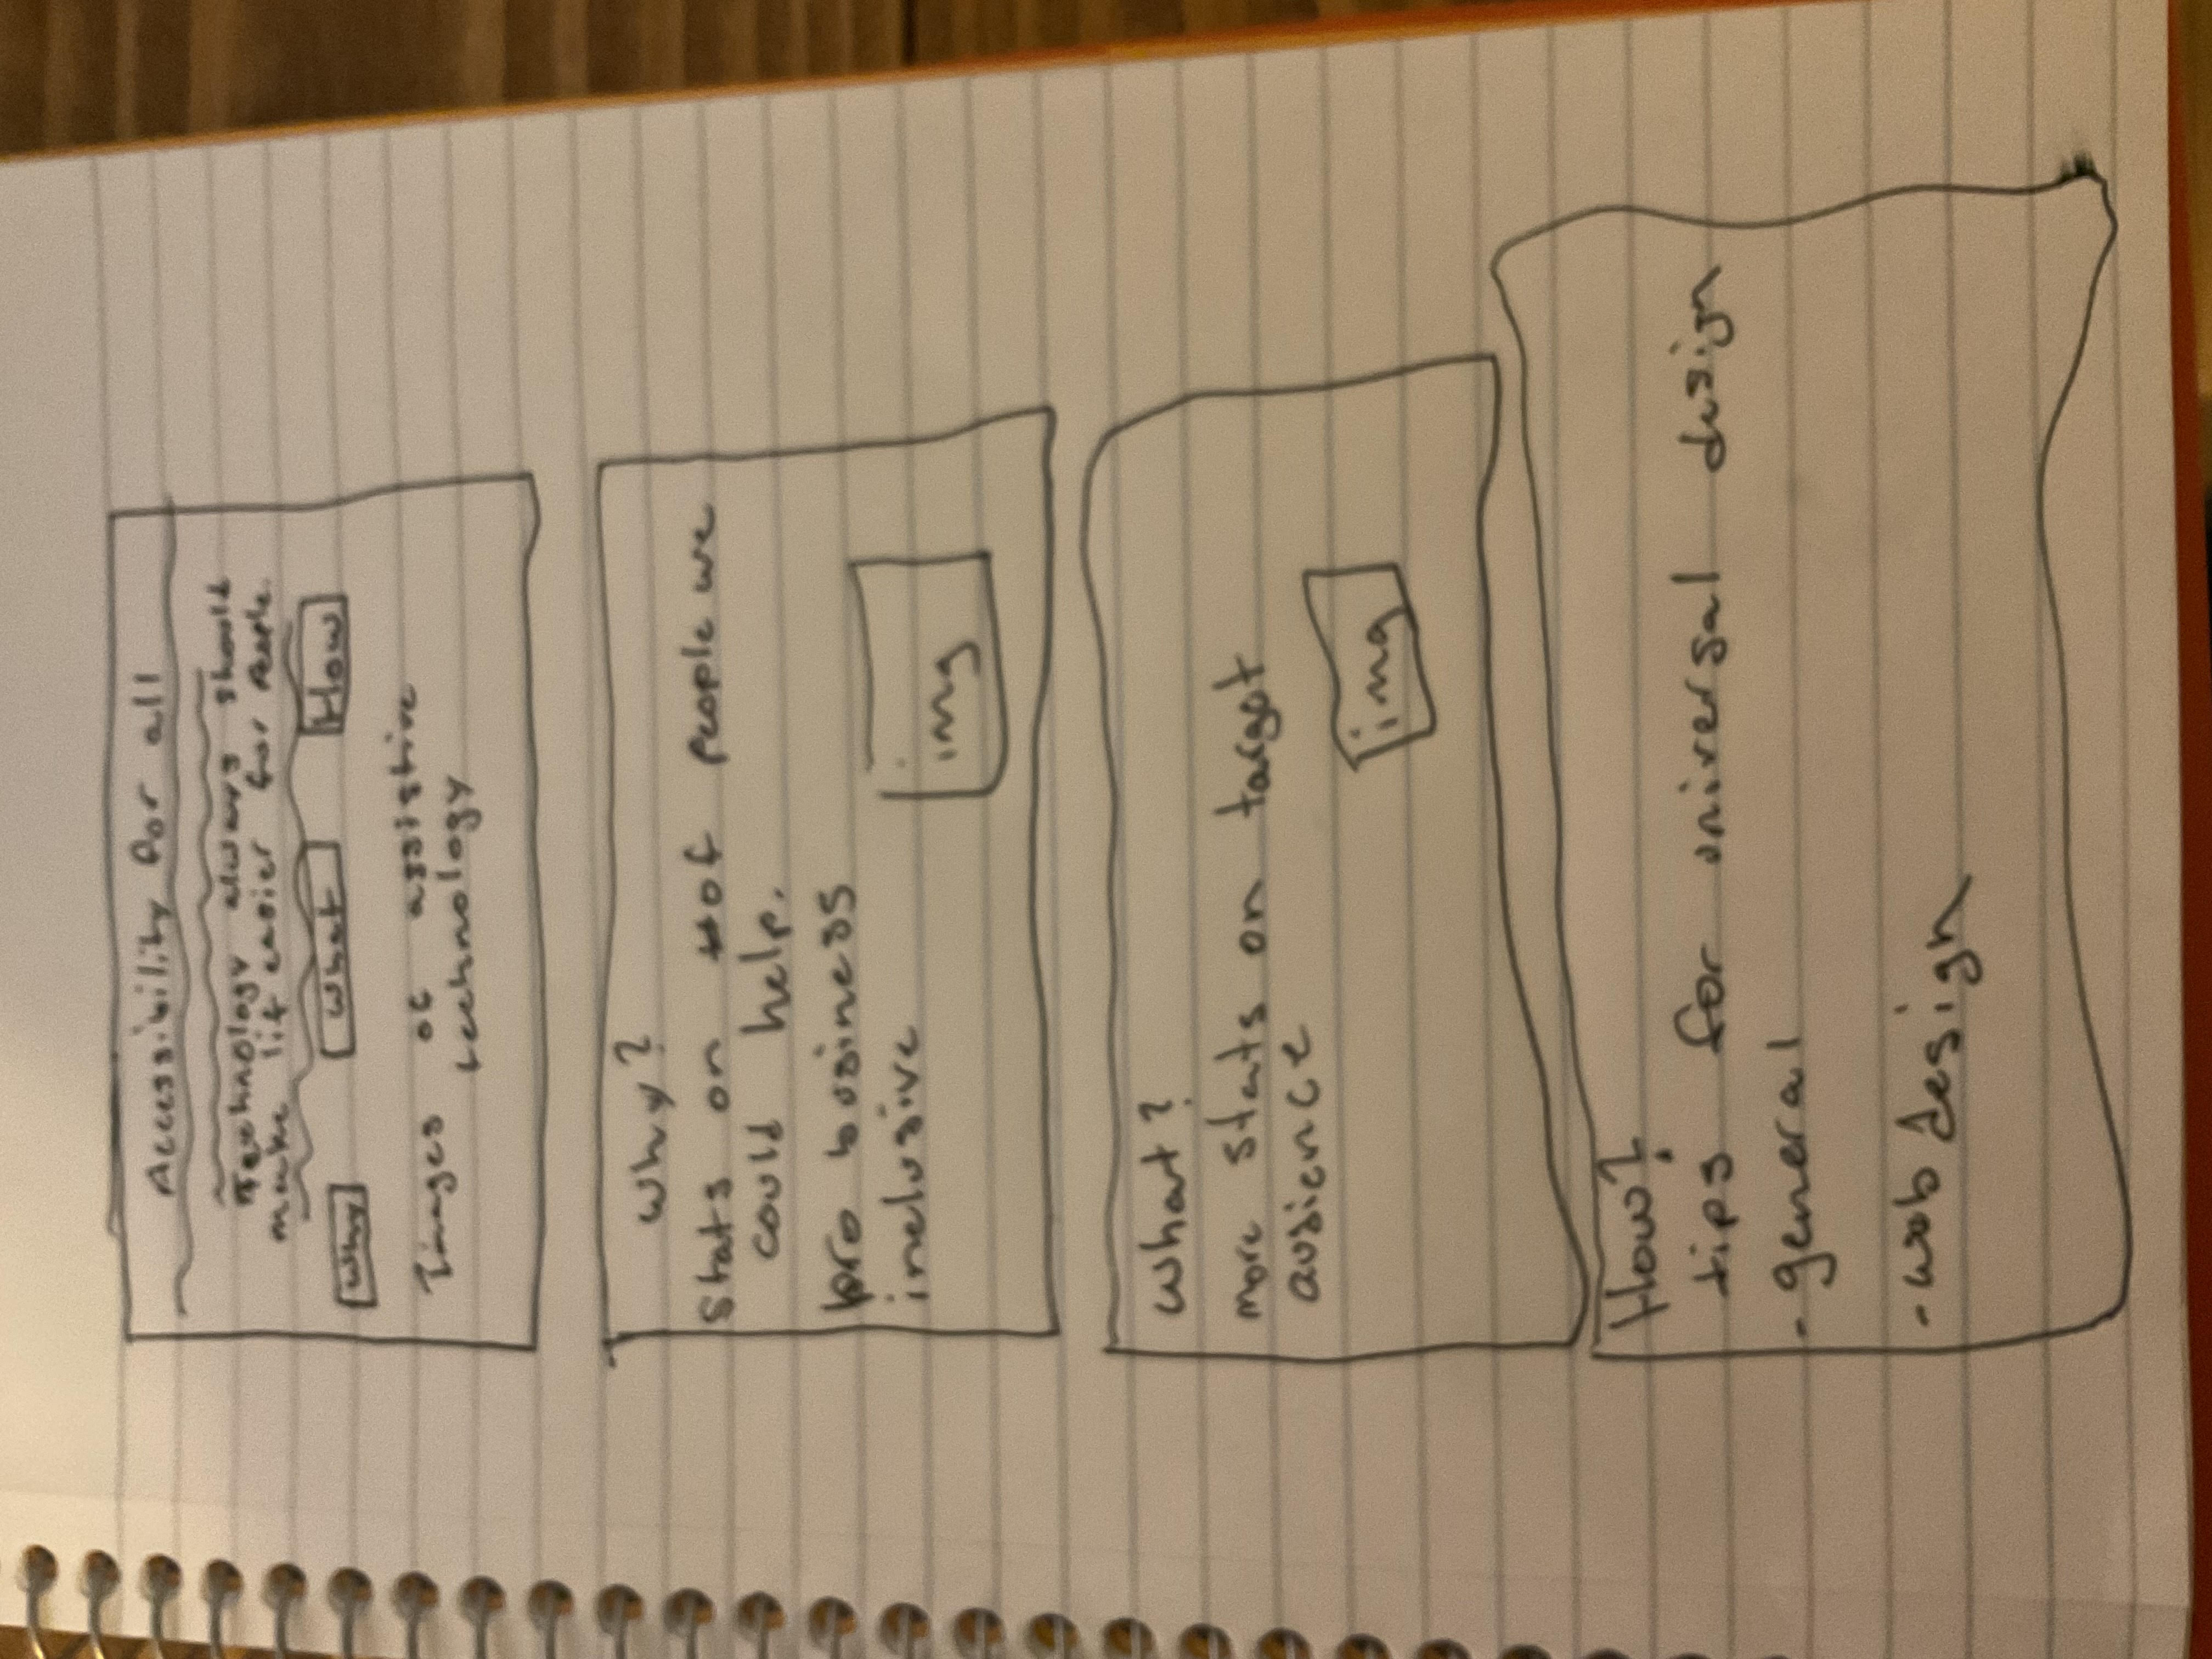 Accessibility for all
Technology always should
make lif easier for people.
Why What How
Images of assistive
technology
Why?
Stats on # of people we
could help.
pro business
inclusive
img
What?
more stats on target
audience
img
How?
tips for universal design
- general
- web design